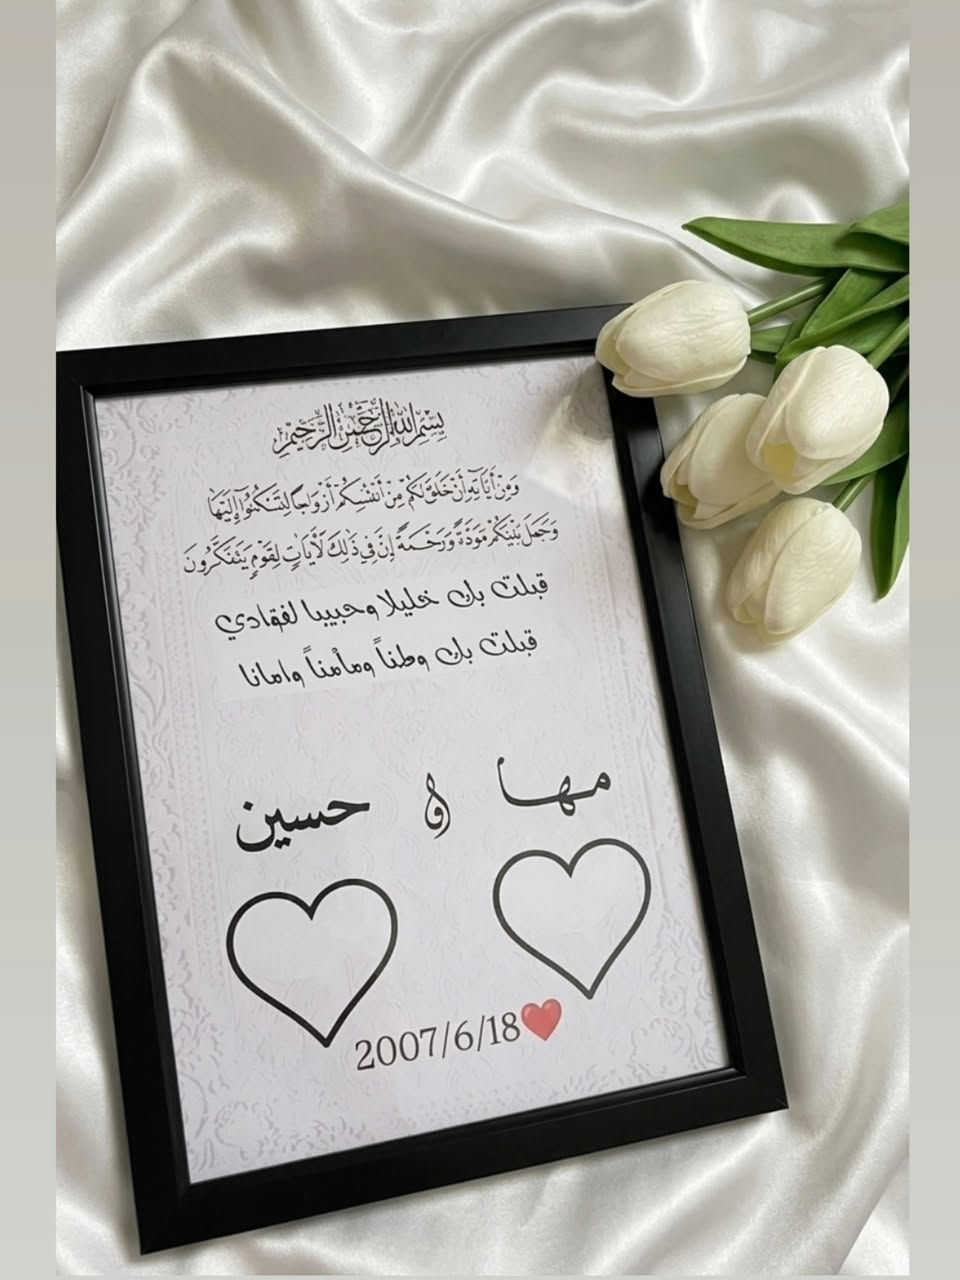 بِسْمِ اللهِ الرَّحْمَنِ الرَّحِيمِ
وَمِنْ آيَاتِهِ أَنْ خَلَقَ لَكُمْ مِنْ أَنْفُسِكُمْ أَزْوَاجًا لِتَسْكُنُوا إِلَيْهَا
وَجَعَلَ بَيْنَكُمْ مَوَدَّةً وَرَحْمَةً إِنَّ فِي ذَلِكَ لَآيَاتٍ لِقَوْمٍ يَتَفَكَّرُونَ
قبلت بك خليلا وحبيبا لفؤادي
قبلت بك وطناً ومأمناً وامانا
مها و حسين
2007/6/18❤️